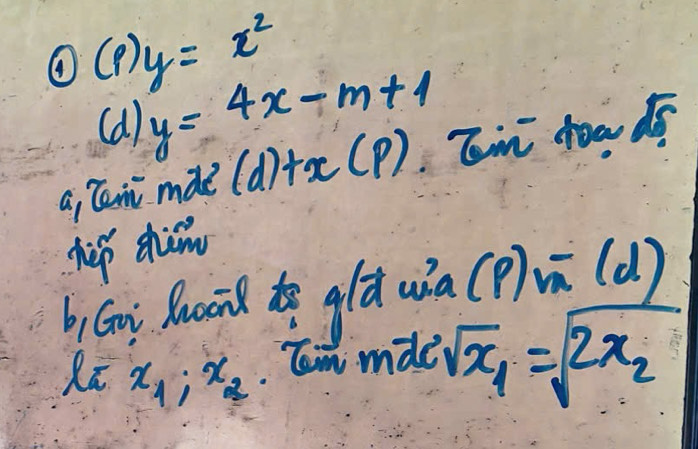 ① (P) y = x²
(d) y = 4x - m + 1
a, Tìm m để (d) tx (P). Tìm toạ độ
tiếp điểm
b, Gọi hoành độ g/đ của (P) và (d)
là x₁; x₂. Tìm m để √x₁ = √2x₂